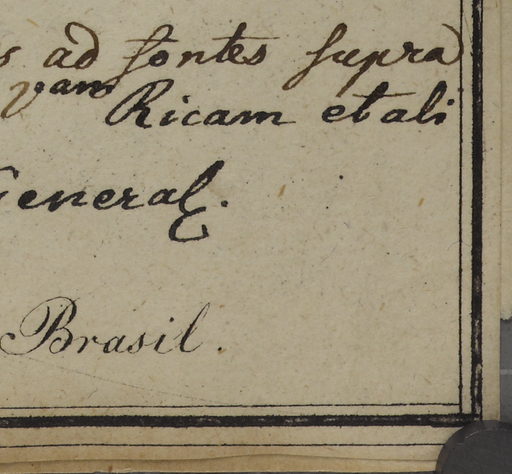 s ad fontes supra
vam Ricam et ali
General.
Brasil.